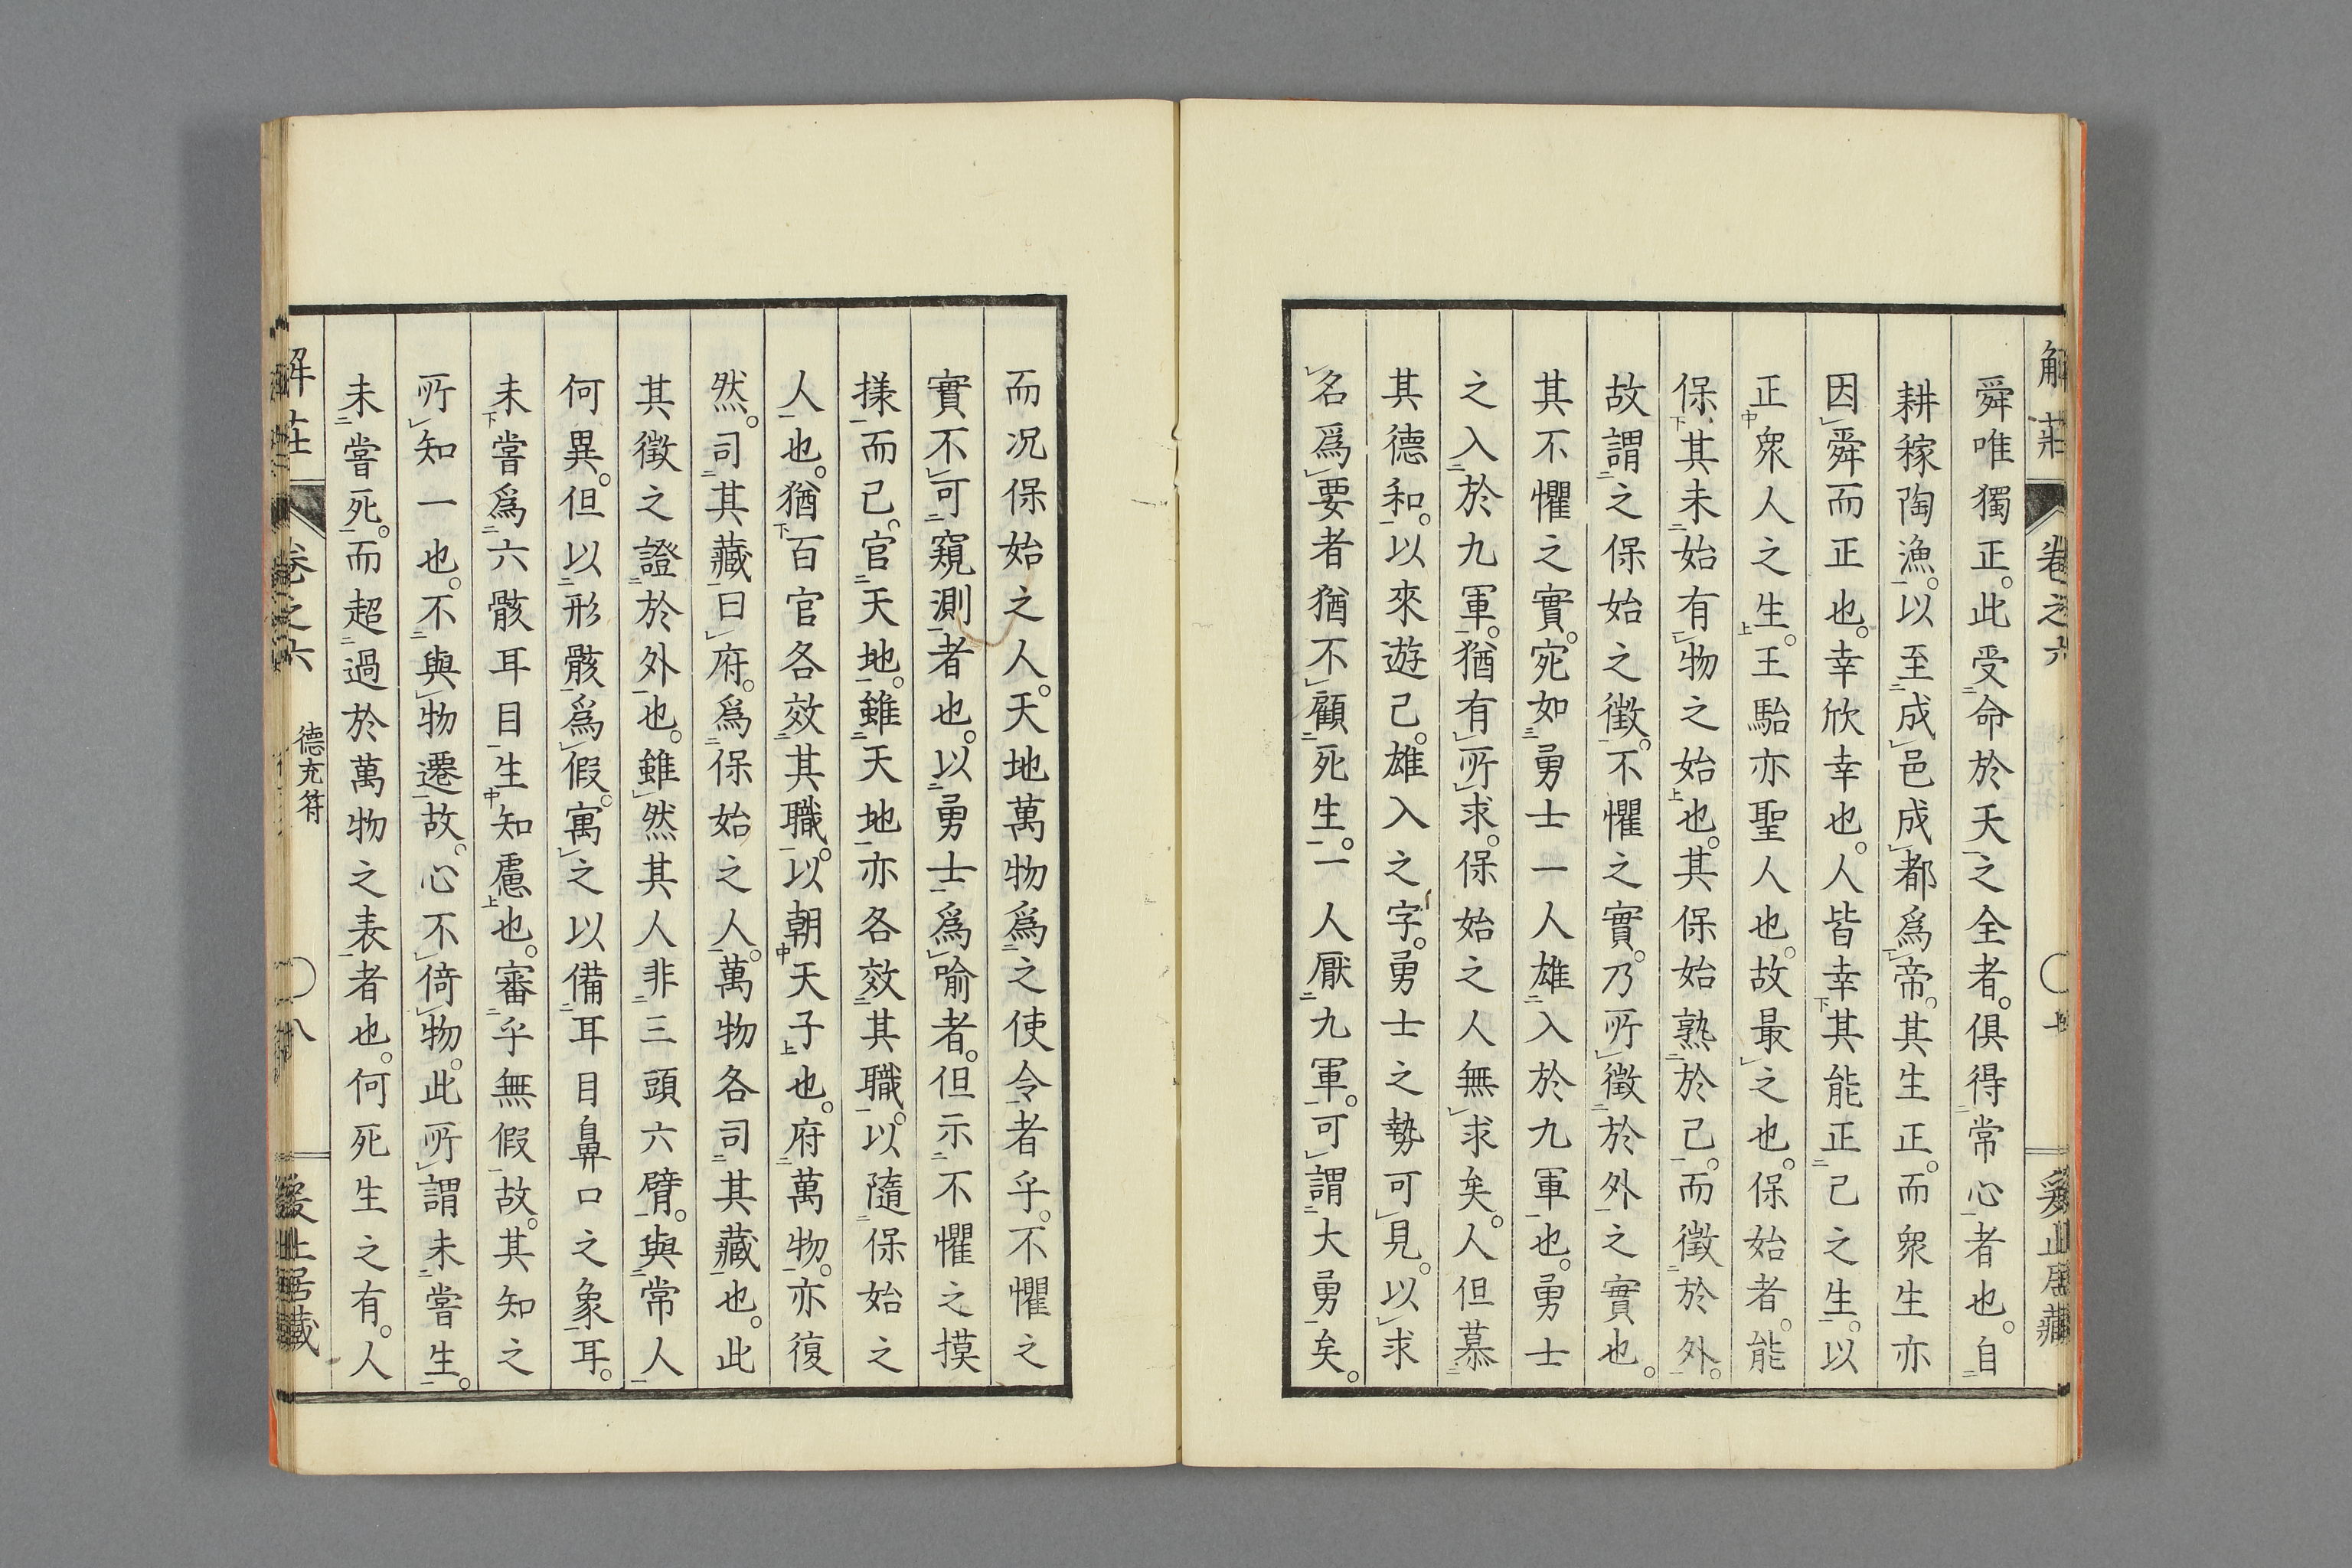 解莊 卷之六
舜唯獨正。此受命於天之全者。俱得常心者也。自
耕稼陶漁。以至成邑成都爲帝。其生正。而衆生亦
因舜而正也。幸欣幸也。人皆幸其能正己之生。以
正衆人之生。王駘亦聖人也。故最之也。保始者。能
保其未始有物之始也。其保始熟於己。而徵於外。
故謂之保始之徵。不懼之實。乃所徵於外之實也。
其不懼之實。宛如勇士一人雄入於九軍也。勇士
之入於九軍。猶有所求。保始之人無求矣。人但慕
其德和。以來遊己。雄入之字。勇士之勢可見。以求
名爲要者猶不顧死生。一人厭九軍。可謂大勇矣。
而況保始之人。天地萬物爲之使令者乎。不懼之
實不可窺測者也。以勇士爲喻者。但示不懼之摸
樣而已。官天地。雖天地亦各效其職。以隨保始之
人也。猶百官各效其職。以朝天子也。府萬物。亦復
然。司其藏曰府。爲保始之人。萬物各司其藏也。此
其徵之證於外也。雖然其人非三頭六臂。與常人
何異。但以形骸爲假。寓之以備耳目鼻口之象耳。
未嘗爲六骸耳目生知慮也。審乎無假故。其知之
所知一也。不與物遷故。心不倚物。此所謂未嘗生。
未嘗死。而超過於萬物之表者也。何死生之有。人
解莊 卷之六 德充符 八